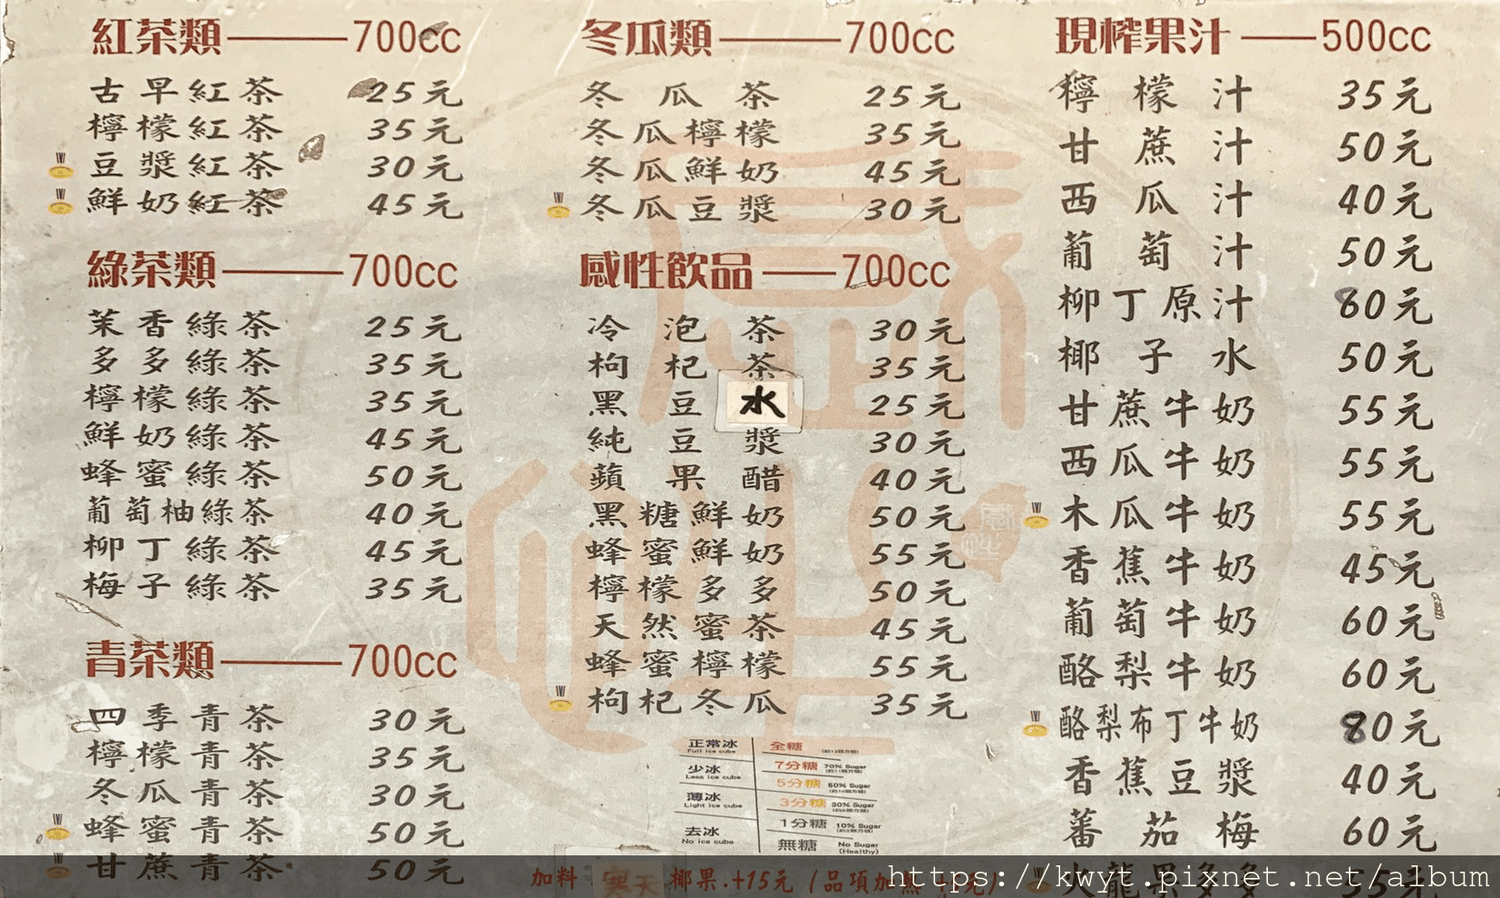 紅茶類 700cc
古早紅茶 25元
檸檬紅茶 35元
豆漿紅茶 30元
鮮奶紅茶 45元
綠茶類 700cc
茉香綠茶 25元
多多綠茶 35元
檸檬綠茶 35元
鮮奶綠茶 45元
蜂蜜綠茶 50元
葡萄柚綠茶 40元
柳丁綠茶 45元
梅子綠茶 35元
青茶類 700cc
四季青茶 30元
檸檬青茶 35元
冬瓜青茶 30元
蜂蜜青茶 50元
甘蔗青茶 50元
冬瓜類 700cc
冬瓜茶 25元
冬瓜檸檬 35元
冬瓜鮮奶 45元
冬瓜豆漿 30元
感性飲品 700cc
冷泡茶 30元
枸杞茶 35元
黑豆水 25元
純豆漿 30元
蘋果醋 40元
黑糖鮮奶 50元
蜂蜜鮮奶 55元
檸檬多多 50元
天然蜜茶 45元
蜂蜜檸檬 55元
枸杞冬瓜 35元
正常冰 Full ice cube
少冰 Less ice cube
薄冰 Light ice cube
去冰 No ice cube
全糖
7分糖 70% Sugar
5分糖 50% Sugar
3分糖 30% Sugar
1分糖 10% Sugar
無糖 No Sugar (Healthy)
加料 寒天 椰果.+15元 (品項加
現榨果汁 500cc
檸檬汁 35元
甘蔗汁 50元
西瓜汁 40元
葡萄汁 50元
柳丁原汁 60元
椰子水 50元
甘蔗牛奶 55元
西瓜牛奶 55元
木瓜牛奶 55元
香蕉牛奶 45元
葡萄牛奶 60元
酪梨牛奶 60元
酪梨布丁牛奶 80元
香蕉豆漿 40元
蕃茄梅 60元
火龍果多多 55元
https://kwyt.pixnet.net/album